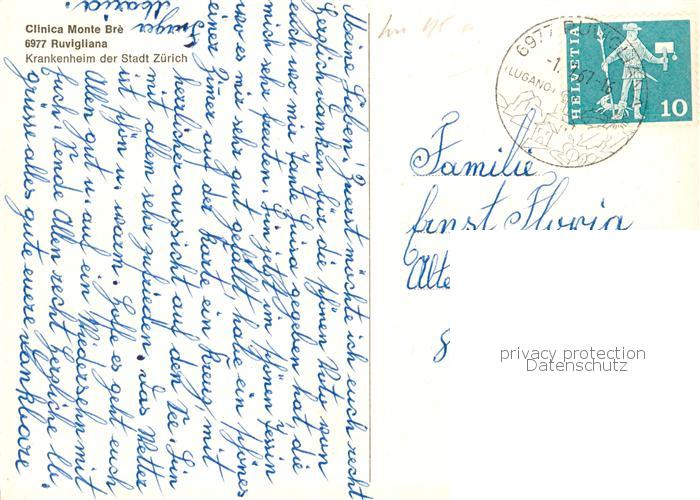 Clinica Monte Brè
6977 Ruvigliana
Krankenheim der Stadt Zürich
Meine Lieben! Zuerst möchte ich euch recht
herzlich danken für die schönen Foto von
euch wo mir Tante Luisa gegeben hat die
mich sehr freuten. Bin jetzt im schönen Tessin
wo es mir sehr gut gefällt habe ein schönes
Zimer auf der Karte ein Kreuz, mit
herrlicher aussicht auf den See. Bin
mit allem sehr zufrieden. Das Wetter
ist schön u. warm. Hoffe es geht euch
Allen gut u. auf ein Wiedersehn mit
Euch. Sende Allen recht herzliche
grüsse alles gute euere dankbare
Maria
6977 RUVIG
-1. 67-16
(LUGANO)
HELVETIA
10
Familie
Ernst
Alte
8
privacy protection
Datenschutz